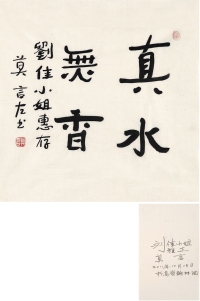 真水
無香
劉佳小姐惠存
莫言左書
劉佳小姐
正
莫言